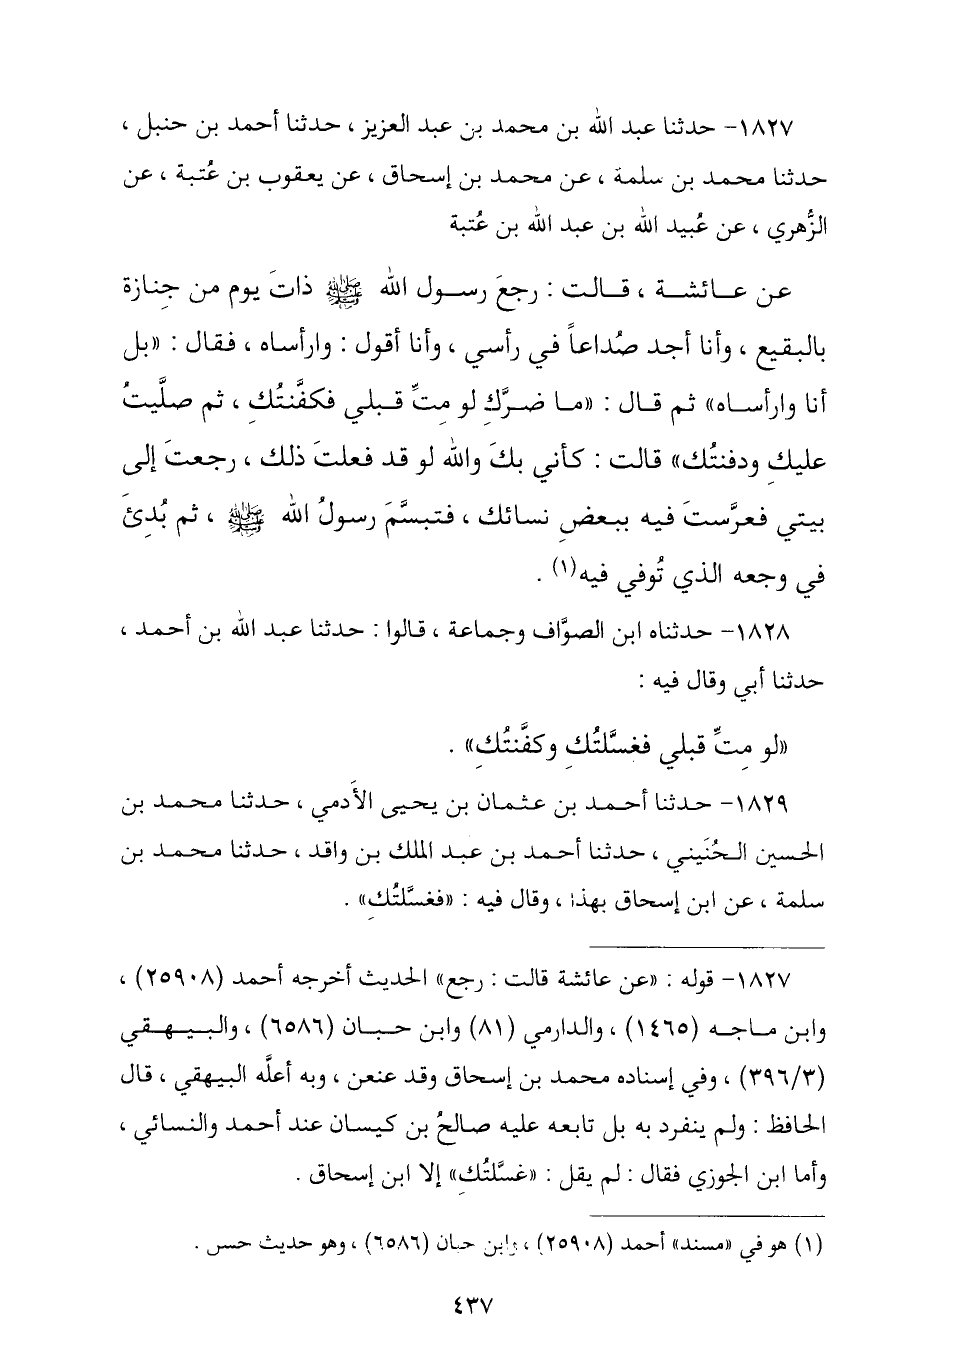 ١٨٢٧- حدثنا عبد الله بن محمد بن عبد العزيز ، حدثنا أحمد بن حنبل ،
حدثنا محمد بن سلمة ، عن محمد بن إسحاق ، عن يعقوب بن عُتبة ، عن
الزُّهري ، عن عُبيد الله بن عبد الله بن عُتبة
عن عائشة ، قالت : رجعَ رسول الله ﷺ ذاتَ يوم من جِنازة
بالبقيع ، وأنا أجد صُداعاً في رأسي ، وأنا أقول : وارأساه ، فقال : «بل
أنا وارأساه» ثم قال : «ما ضرَّكِ لو مِتِّ قبلي فكفَّنتُكِ ، ثم صلَّيتُ
عليكِ ودفنتُكِ» قالت : كأني بكَ والله لو قد فعلتَ ذلك ، رجعتَ إلى
بيتي فعرَّستَ فيه ببعضِ نسائك ، فتبسَّمَ رسولُ الله ﷺ ، ثم بُدِئَ
في وجعه الذي تُوفي فيه(١) .
١٨٢٨- حدثناه ابن الصوَّاف وجماعة ، قالوا : حدثنا عبد الله بن أحمد ،
حدثنا أبي وقال فيه :
«لو مِتِّ قبلي فغسَّلتُكِ وكفَّنتُكِ» .
١٨٢٩- حدثنا أحمد بن عثمان بن يحيى الأَدمي ، حدثنا محمد بن
الحسين الحُنَيني ، حدثنا أحمد بن عبد الملك بن واقد ، حدثنا محمد بن
سلمة ، عن ابن إسحاق بهذا ، وقال فيه : «فغسَّلتُكِ» .
١٨٢٧- قوله : «عن عائشة قالت : رجع» الحديث أخرجه أحمد (٢٥٩٠٨) ،
وابن ماجه (١٤٦٥) ، والدارمي (٨١) وابن حبان (٦٥٨٦) ، والبيهقي
(٣٩٦/٣) ، وفي إسناده محمد بن إسحاق وقد عنعن ، وبه أعلَّه البيهقي ، قال
الحافظ : ولم ينفرد به بل تابعه عليه صالحُ بن كيسان عند أحمد والنسائي ،
وأما ابن الجوزي فقال : لم يقل : «غسَّلتُكِ» إلا ابن إسحاق .
(١) هو في «مسند» أحمد (٢٥٩٠٨) ، وابن حبان (٦٥٨٦) ، وهو حديث حسن .
٤٣٧